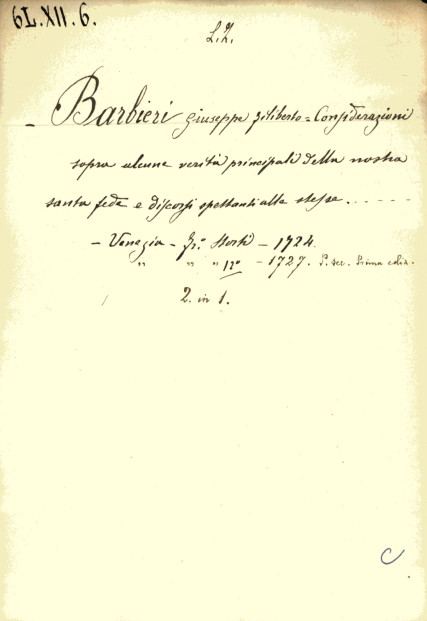 6L.XII.6.
L.Z.
- Barbieri Giuseppe filiberto = Considerazioni
sopra alcune verità principali della nostra
santa fede e discorsi spettanti alle stesse. - - - - -
- Venezia - Fr.º Storti - 1724.
" " " 12º - 1727. P. sec. Prima ediz.
2. in 1.
C